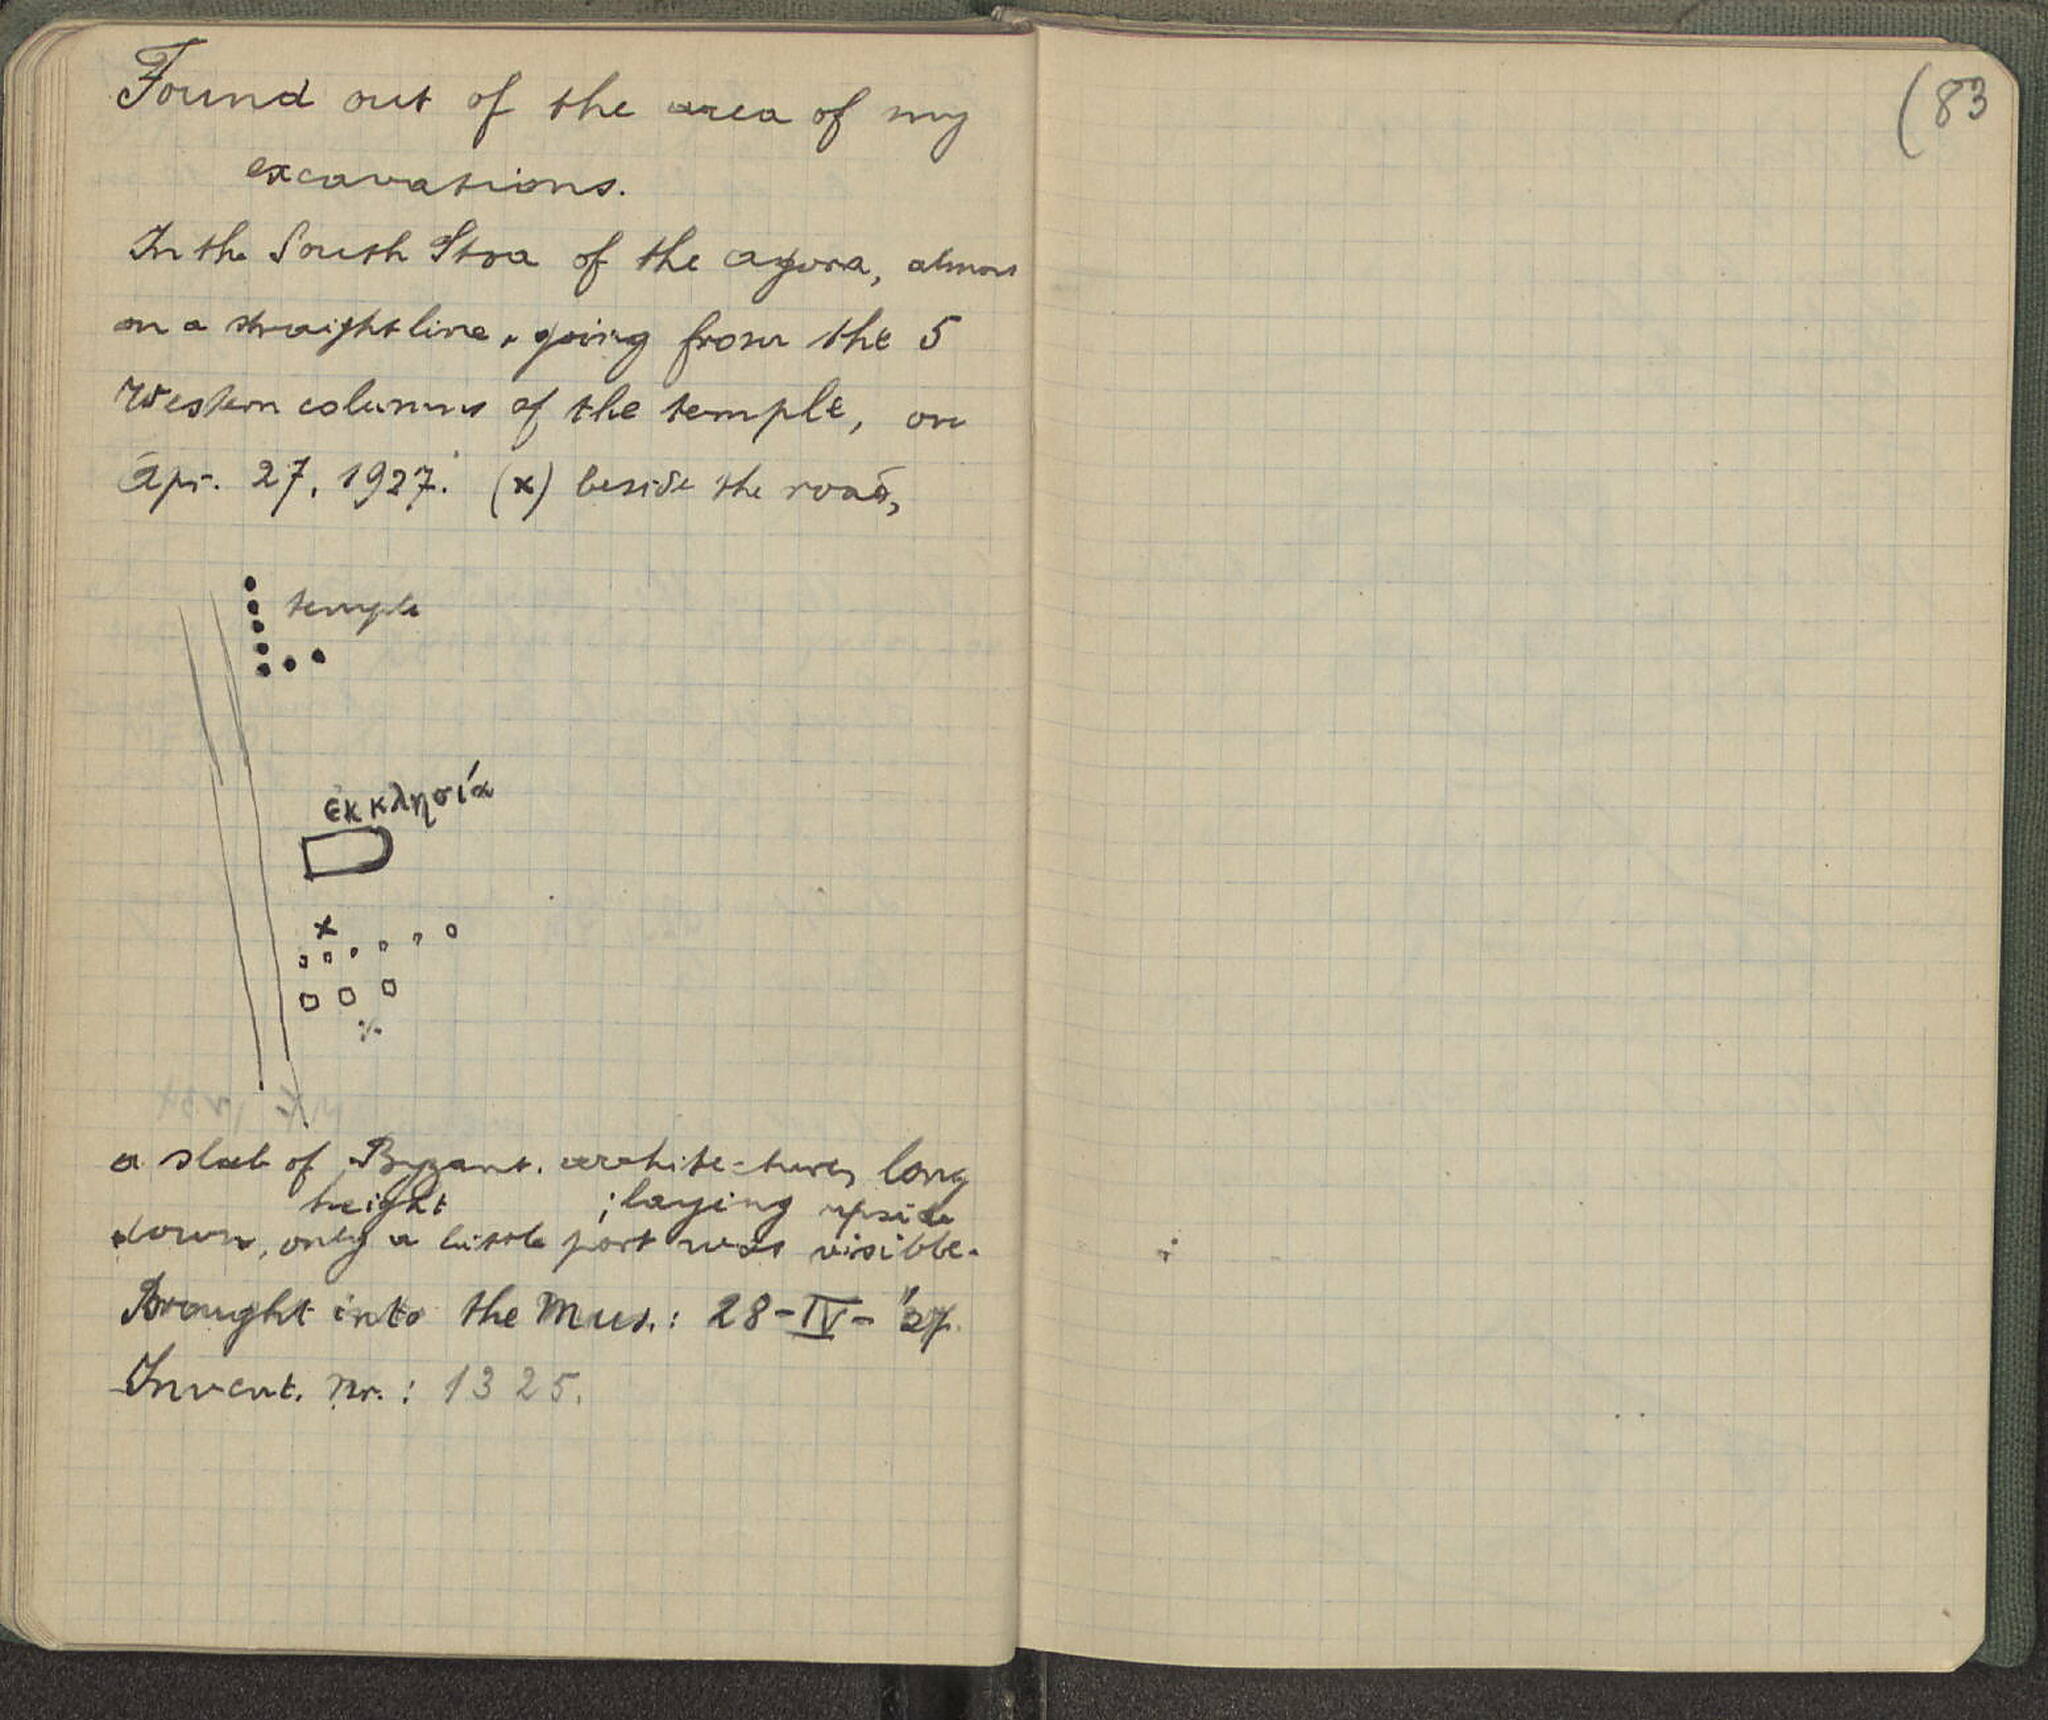 Found out of the area of my
excavations.
In the South Stoa of the agora, almost
on a straight line, going from the 5
Western columns of the temple, on
Apr. 27, 1927. (x) beside the road,
temple
εκκλησία
x
a slab of Byzant. architecture, long
height ; laying upside
down, only a little part was visible.
Brought into the Mus.: 28-IV-'27.
Invent. nr.: 1325.
(83